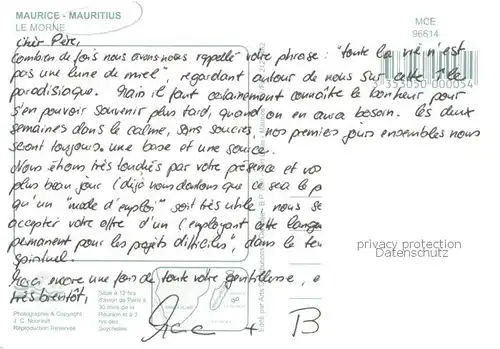 MAURICE - MAURITIUS
LE MORNE
MCE
96614
Cher Père,
Combien de fois nous avons nous rappellé votre phrase: "toute la vie n'est
pas une lune de miel", regardant autour de nous sur cette île
paradisiaque. Mais il faut certainement connaître le bonheur pour
s'en pouvoir souvenir plus tard, quand on en aura besoin. Les deux
semaines dans le calme, sans soucies, nos premiers jours ensembles nous
seont toujours une base et une source.
Nous étions très touchés par votre présence et vos
plus beau jour (déjà nous doutons que ce sea le p
qu'un "mode d'emploi" soit très utile nous se
accepter votre offre d'un (employant cette langue
permanent pour les projets difficiles", dans le te
spirituel.
Merci encore une fois de toute votre gentillesse, e
très bientôt,
+ B
3 353050 000054
privacy protection
Datenschutz
Situé à 12 hrs
d'avion de Paris à
30 mins de la
Réunion et à 3
hrs des
Seychelles
Photographie & Copyright
J. C. Nourault
Reproduction Réservée